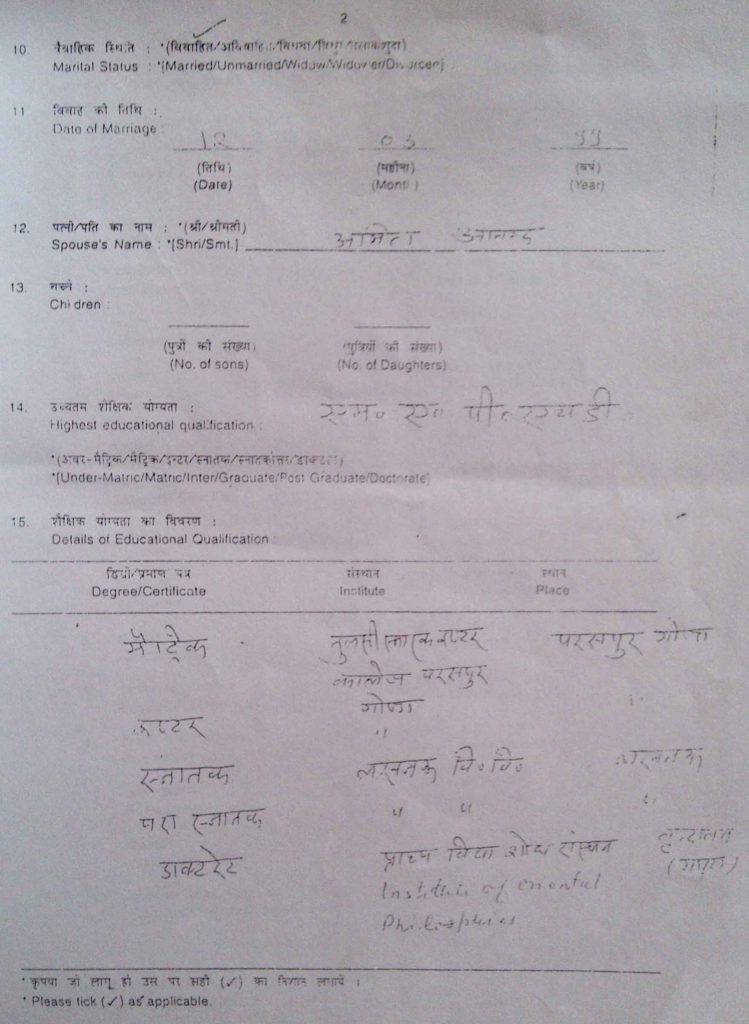 2
10. वैवाहिक स्थिति : *(विवाहित/अविवाहित/विधवा/विधुर/तलाकशुदा)
Marital Status : *[Married/Unmarried/Widow/Widower/Divorcee]
11 विवाह की तिथि :
Date of Marriage :
12 03 99
(तिथि) (महीना) (वर्ष)
(Date) (Month) (Year)
12. पत्नी/पति का नाम : *(श्री/श्रीमती)
Spouse's Name : *[Shri/Smt.] आनन्द
13. बच्चे :
Children :
(पुत्रों की संख्या) (पुत्रियों की संख्या)
(No. of sons) (No. of Daughters)
14. उच्चतम शैक्षिक योग्यता : एम० ए० पी० एच डी
Highest educational qualification :
*(अवर-मैट्रिक/मैट्रिक/इन्टर/स्नातक/स्नातकोत्तर/डाक्टरेट)
*[Under-Matric/Matric/Inter/Graduate/Post Graduate/Doctorate]
15. शैक्षिक योग्यता का विवरण :
Details of Educational Qualification :
डिग्री/प्रमाण पत्र संस्थान स्थान
Degree/Certificate Institute Place
मैट्रिक तुलसी स्मारक इण्टर परसपुर गोण्डा
कालेज परसपुर
गोण्डा
इण्टर " "
स्नातक लखनऊ वि० वि० लखनऊ
परा स्नातक " " "
डाक्टरेट प्राच्य विद्या शोध संस्थान वृन्दावन
Institute of oriental (मथुरा)
Philosophies
* कृपया जो लागू हो उस पर सही (✓) का निशान लगायें ।
* Please tick (✓) as applicable.